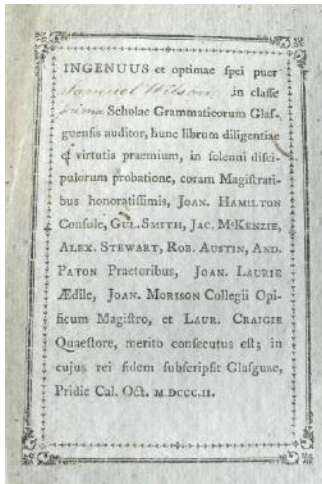 INGENUUS et optimae spei puer
Samuel Wilson in classe
prima Scholae Grammaticorum Glas-
guensis auditor, hunc librum diligentiae
& virtutis praemium, in solenni disci-
pulorum probatione, coram Magistrati-
bus honoratissimis, JOAN. HAMILTON
Consule, GUL. SMITH, JAC. M'KENZIE,
ALEX. STEWART, ROB. AUSTIN, AND.
PATON Praetoribus, JOAN. LAURIE
Ædile, JOAN. MORISON Collegii Opi-
ficum Magistro, et LAUR. CRAIGIE
Quaestore, merito consecutus est; in
cujus rei fidem subscripsit Glasguae,
Pridie Cal. Oct. M.DCCC.II.